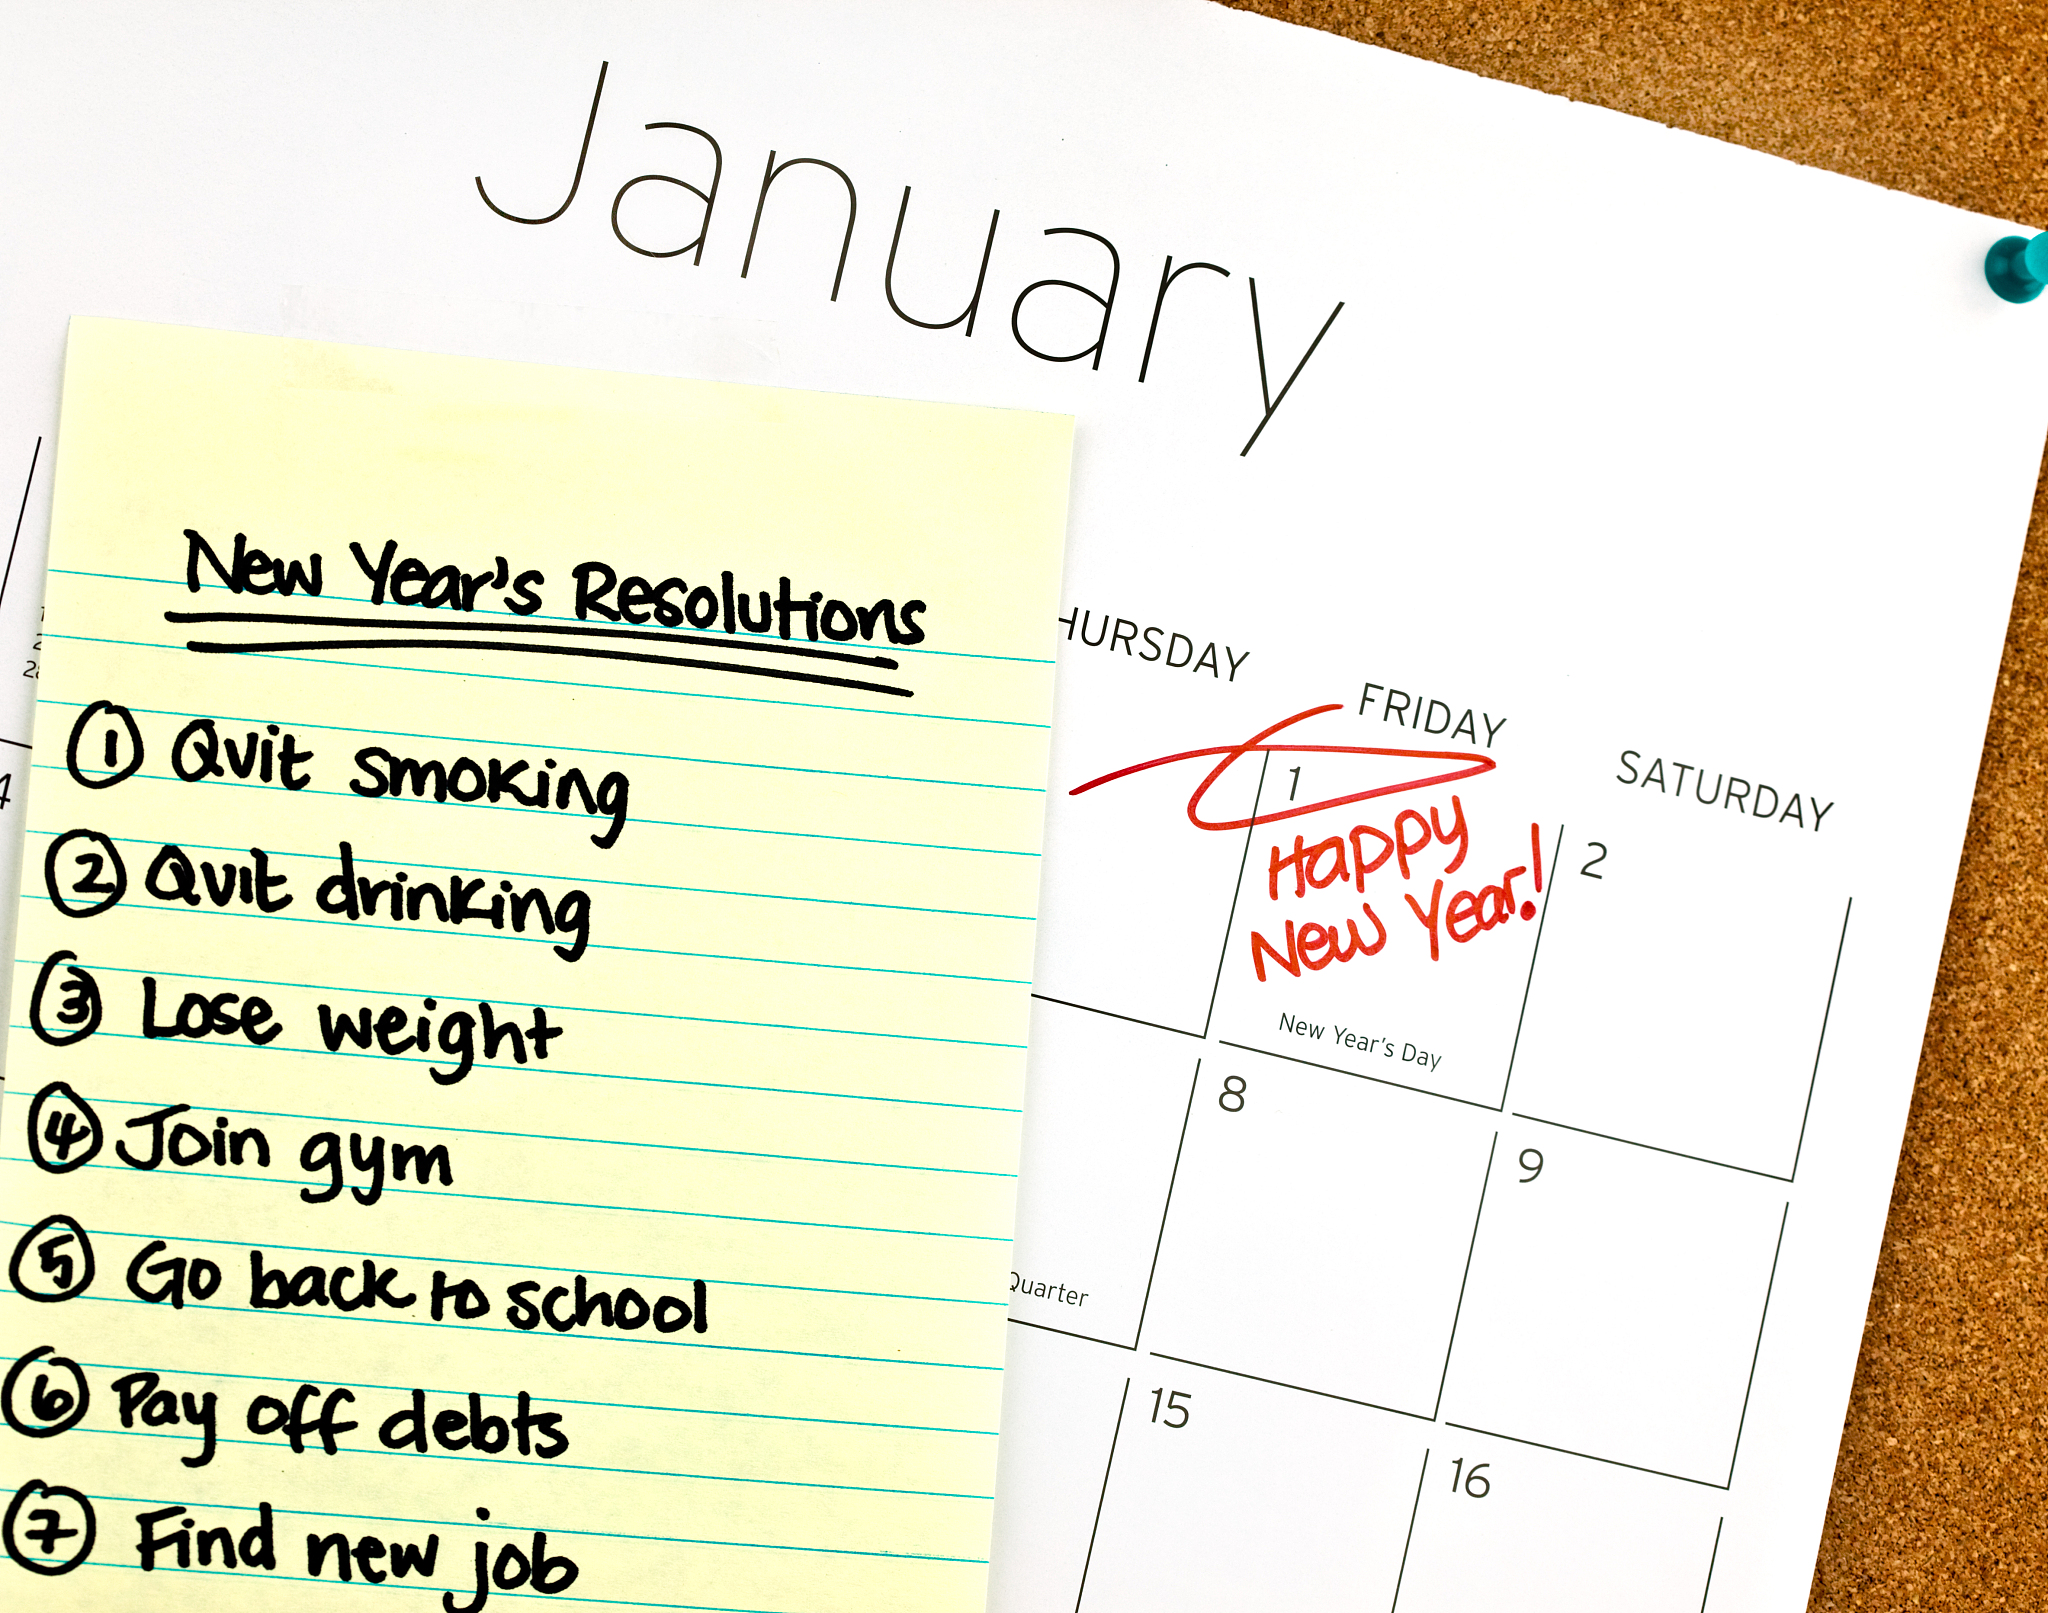 January
New Year's Resolutions
① Quit smoking
② Quit drinking
③ Lose weight
④ Join gym
⑤ Go back to school
⑥ Pay off debts
⑦ Find new job
HURSDAY
FRIDAY
SATURDAY
1
Happy
New Year!
New Year's Day
2
4
Quarter
8
9
15
16